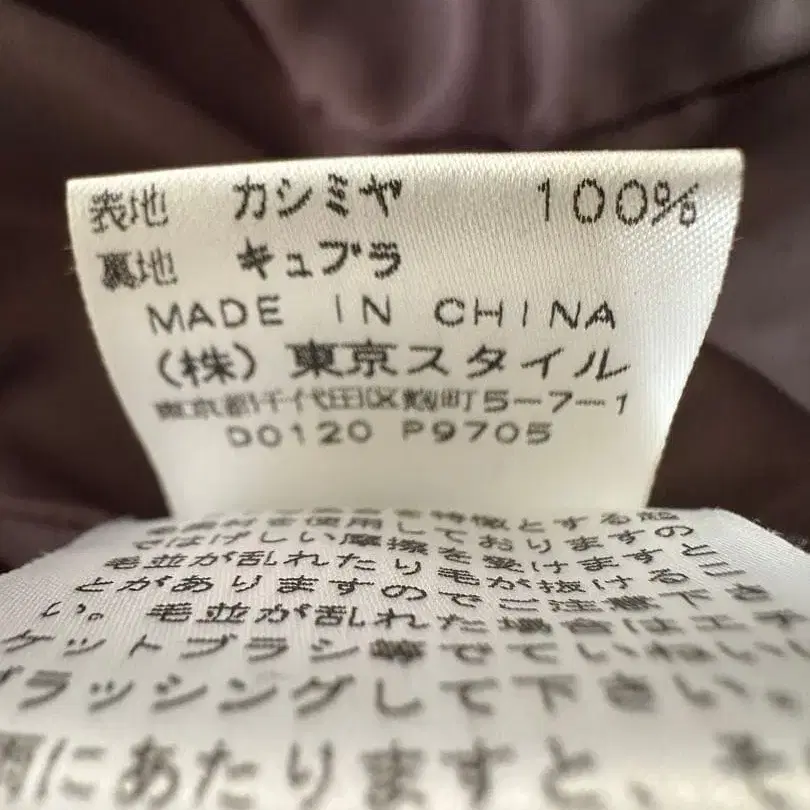 表地 カシミヤ 100%
裏地 キュプラ
MADE IN CHINA
(株) 東京スタイル
東京都千代田区麹町5-7-1
D0120 P9705
を使用しておりますの
ではげしい摩擦を受けますと
毛並が乱れたり毛が抜けるこ
とがありますのでご注意下さ
い。毛並が乱れた場合はエチ
ケットブラシ等でていねいに
ブラッシングして下さい。
雨にあたりますと、